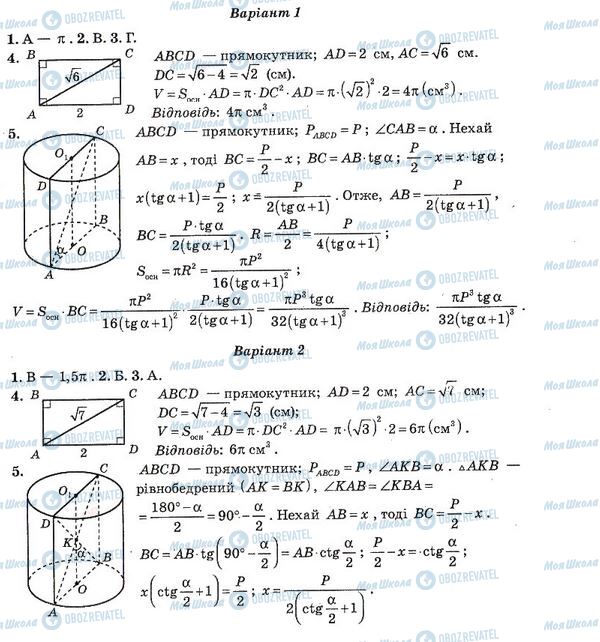 Варіант 1
1. А — π . 2. В. 3. Г.
4. B C √6 A 2 D ABCD — прямокутник; AD = 2 см, AC = √6 см.
DC = √6−4 = √2 (см).
V = Sосн · AD = π · DC² · AD = π · (√2)² · 2 = 4π (см³).
Відповідь: 4π см³.
5. C O₁ D B α O A ABCD — прямокутник; P_ABCD = P; ∠CAB = α. Нехай
AB = x, тоді BC = P/2 − x; BC = AB · tg α; P/2 − x = x · tg α;
x(tg α + 1) = P/2; x = P/(2(tg α + 1)). Отже, AB = P/(2(tg α + 1)),
BC = P · tg α/(2(tg α + 1)). R = AB/2 = P/(4(tg α + 1));
Sосн = πR² = πP²/(16(tg α + 1)²);
V = Sосн · BC = πP²/(16(tg α + 1)²) · P · tg α/(2(tg α + 1)) = πP³ tg α/(32(tg α + 1)³). Відповідь: πP³ tg α/(32(tg α + 1)³).
Варіант 2
1. В — 1,5π . 2. Б. 3. А.
4. B C √7 A 2 D ABCD — прямокутник; AD = 2 см; AC = √7 см;
DC = √7−4 = √3 (см);
V = Sосн · AD = π · DC² · AD = π · (√3)² · 2 = 6π (см³).
Відповідь: 6π см³.
5. C O₁ D K α B O A ABCD — прямокутник; P_ABCD = P, ∠AKB = α. △AKB —
рівнобедрений (AK = BK), ∠KAB = ∠KBA =
= (180° − α)/2 = 90° − α/2. Нехай AB = x, тоді BC = P/2 − x.
BC = AB · tg(90° − α/2) = AB · ctg α/2; P/2 − x = · ctg α/2;
x(ctg α/2 + 1) = P/2; x = P/(2(ctg α/2 + 1)).
Моя Школа OBOZREVATEL